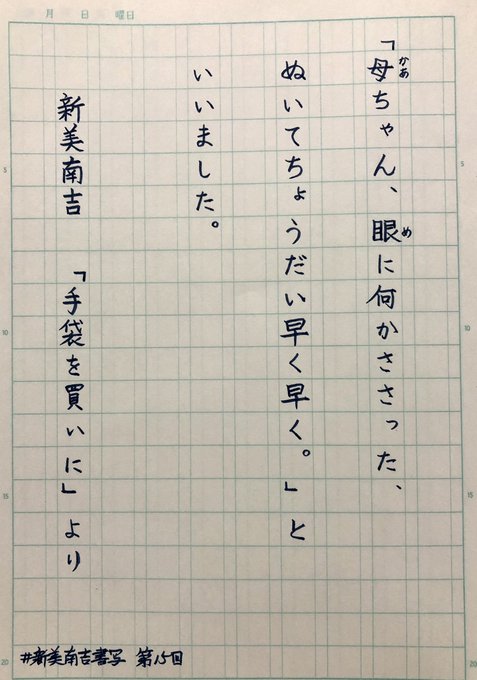 月 日 曜日
「母ちゃん、眼に何かささった、
かあ
め
ぬいてちょうだい早く早く。」と
いいました。
新美南吉 「手袋を買いに」より
5
10
15
20
5
10
15
20
#新美南吉書写 第15回